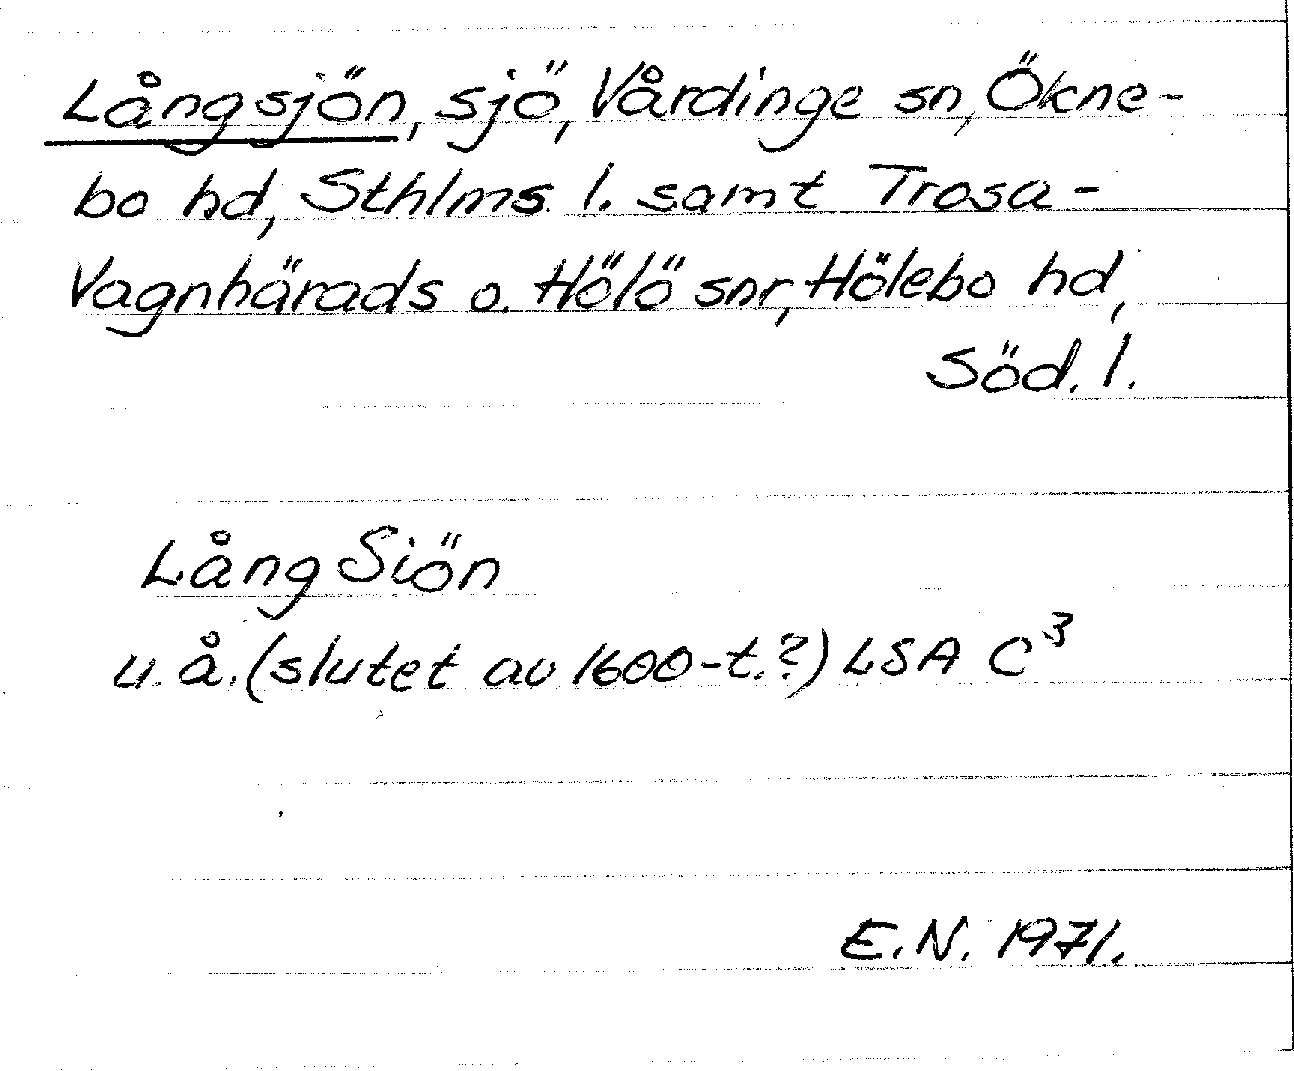 Långsjön, sjö, Vårdinge sn, Ökne-
bo hd, Sthlms l. samt Trosa-
Vagnhärads o. Hölö snr, Hölebo hd,
Söd. l.
Lång Siön
u.å. (slutet av 1600-t.?) LSA C³
E.N. 1971.